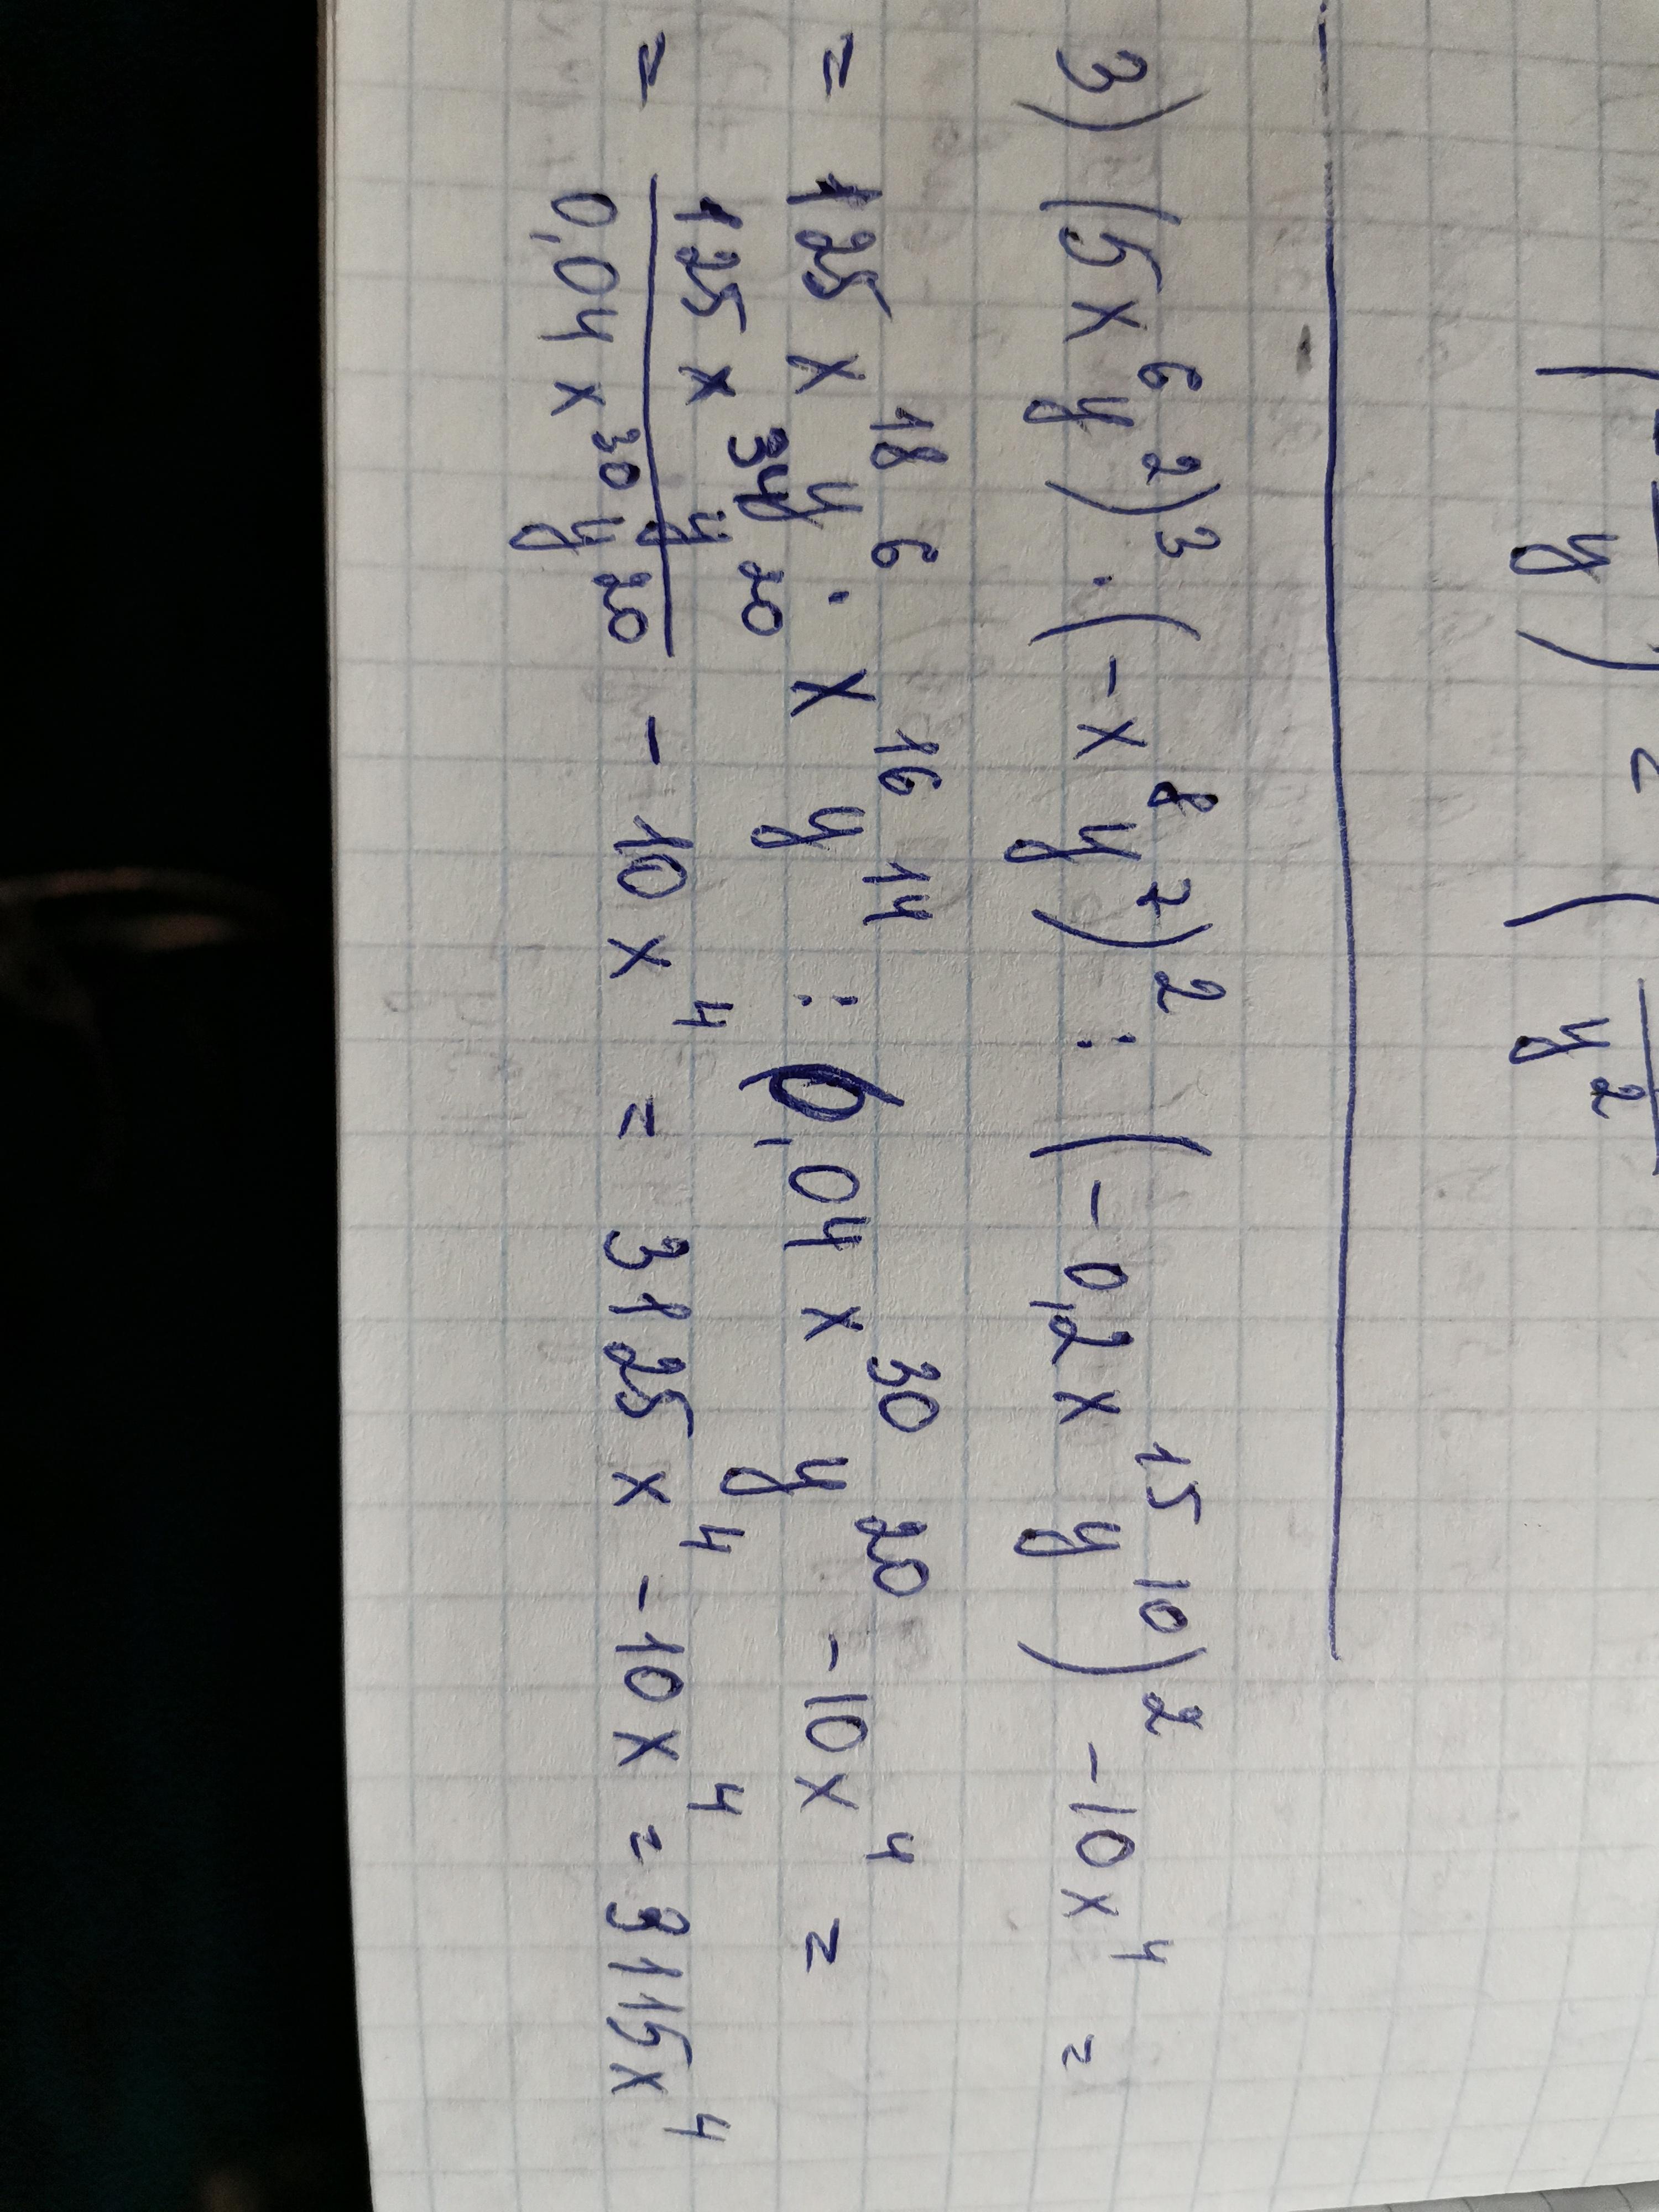 y) = ( y²
3) (5x⁶y²)³ · (-x⁸y⁷)² : (-0,2x¹⁵y¹⁰)² - 10x⁴ =
= 125x¹⁸y⁶ · x¹⁶y¹⁴ : 0,04x³⁰y²⁰ - 10x⁴ =
= 125x³⁴y²⁰ / 0,04x³⁰y²⁰ - 10x⁴ = 3125x⁴ - 10x⁴ = 3115x⁴